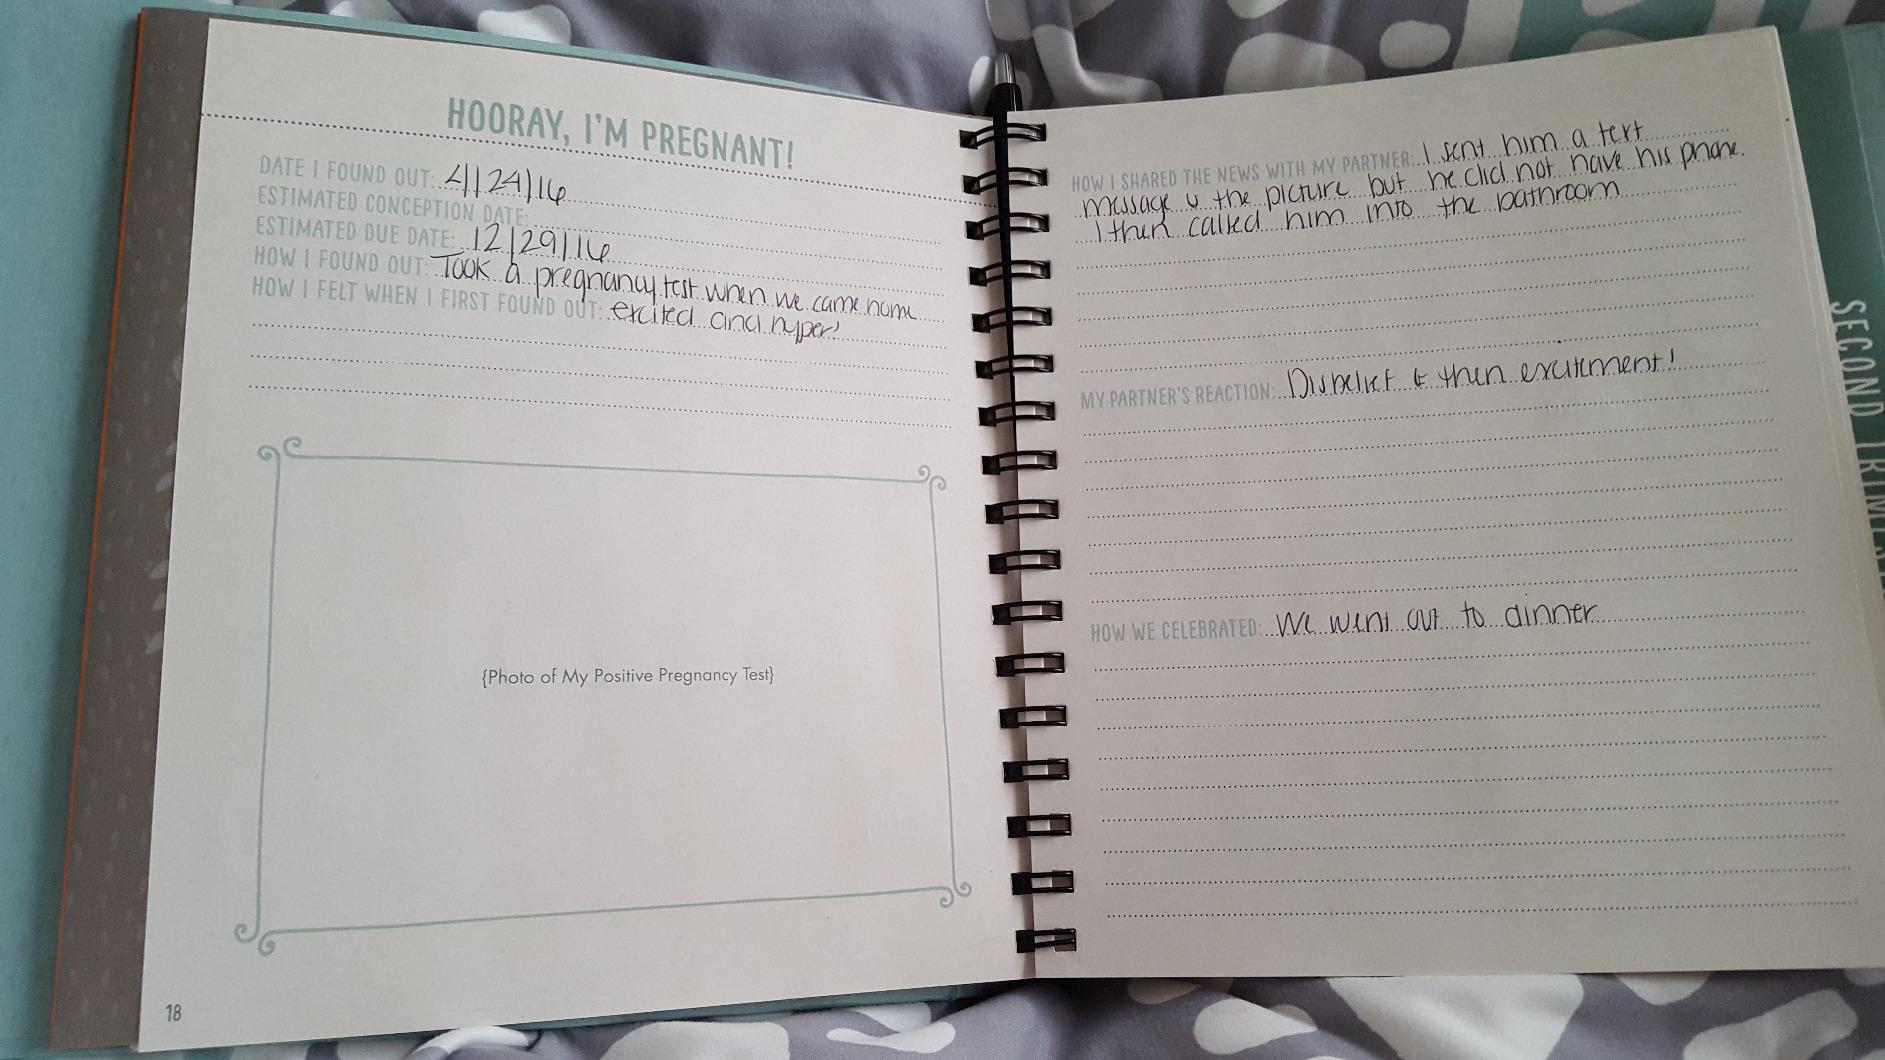 HOORAY, I'M PREGNANT!
DATE I FOUND OUT: 4/24/16
ESTIMATED CONCEPTION DATE:
ESTIMATED DUE DATE: 12/29/16
HOW I FOUND OUT: Took a pregnancy test when we came home
HOW I FELT WHEN I FIRST FOUND OUT: excited and hyper!
{Photo of My Positive Pregnancy Test}
18
HOW I SHARED THE NEWS WITH MY PARTNER: I sent him a text
message & the picture but he did not have his phone.
I then called him into the bathroom
MY PARTNER'S REACTION: Disbelief & then excitement!
HOW WE CELEBRATED: We went out to dinner
SECOND